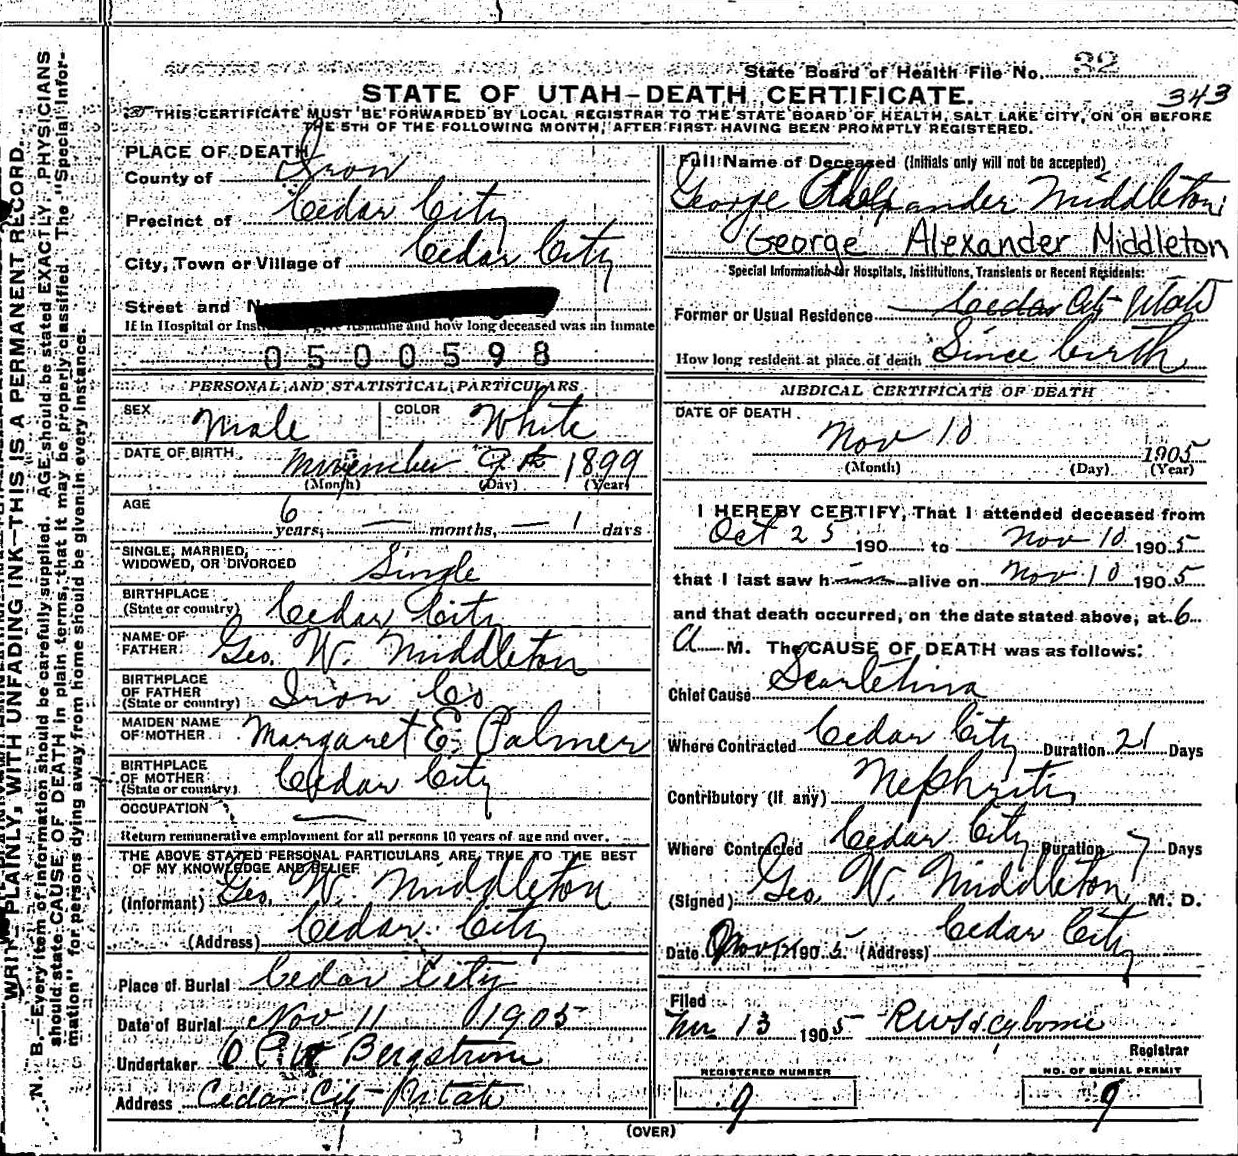 State Board of Health File No. 32
STATE OF UTAH–DEATH CERTIFICATE.
343
THIS CERTIFICATE MUST BE FORWARDED BY LOCAL REGISTRAR TO THE STATE BOARD OF HEALTH, SALT LAKE CITY, ON OR BEFORE
THE 5TH OF THE FOLLOWING MONTH, AFTER FIRST HAVING BEEN PROMPTLY REGISTERED.
WRITE PLAINLY, WITH UNFADING INK—THIS IS A PERMANENT RECORD.
N. B.—Every item of information should be carefully supplied. AGE should be stated EXACTLY. PHYSICIANS
should state CAUSE OF DEATH in plain terms, that it may be properly classified. The "Special Infor-
mation" for persons dying away from home should be given in every instance.
PLACE OF DEATH
County of Iron
Precinct of Cedar City
City, Town or Village of Cedar City
Street and
If in Hospital or its name and how long deceased was an inmate
0500598
PERSONAL AND STATISTICAL PARTICULARS
SEX Male COLOR White
DATE OF BIRTH November 9th 1899
(Month) (Day) (Year)
AGE
6 years, — months, — 1 days
SINGLE, MARRIED,
WIDOWED, OR DIVORCED Single
BIRTHPLACE
(State or country) Cedar City
NAME OF
FATHER Geo. W. Middleton
BIRTHPLACE
OF FATHER
(State or country) Iron Co
MAIDEN NAME
OF MOTHER Margaret E. Palmer
BIRTHPLACE
OF MOTHER
(State or country) Cedar City
OCCUPATION —
Return remunerative employment for all persons 10 years of age and over.
THE ABOVE STATED PERSONAL PARTICULARS ARE TRUE TO THE BEST
OF MY KNOWLEDGE AND BELIEF
(Informant) Geo. W. Middleton
(Address) Cedar City
Place of Burial Cedar City
Date of Burial Nov 11 1905
Undertaker Bergstrom
Address Cedar City Utah
Full Name of Deceased (Initials only will not be accepted)
George Middleton
George Alexander Middleton
Special Information for Hospitals, Institutions, Transients or Recent Residents:
Former or Usual Residence Cedar City Utah
How long resident at place of death Since birth
MEDICAL CERTIFICATE OF DEATH
DATE OF DEATH
Nov 10 1905
(Month) (Day) (Year)
I HEREBY CERTIFY, That I attended deceased from
Oct 25 190 to Nov 10 1905
that I last saw him alive on Nov 10 1905
and that death occurred, on the date stated above, at 6
A M. The CAUSE OF DEATH was as follows:
Chief Cause Scarletina
Where Contracted Cedar City Duration 21 Days
Contributory (if any) Nephritis
Where Contracted Cedar City Duration 7 Days
(Signed) Geo. W. Middleton, M. D.
Date Nov 1905. (Address) Cedar City
Filed
Nov. 13 1905
Registrar
REGISTERED NUMBER NO. OF BURIAL PERMIT
9 9
(OVER)